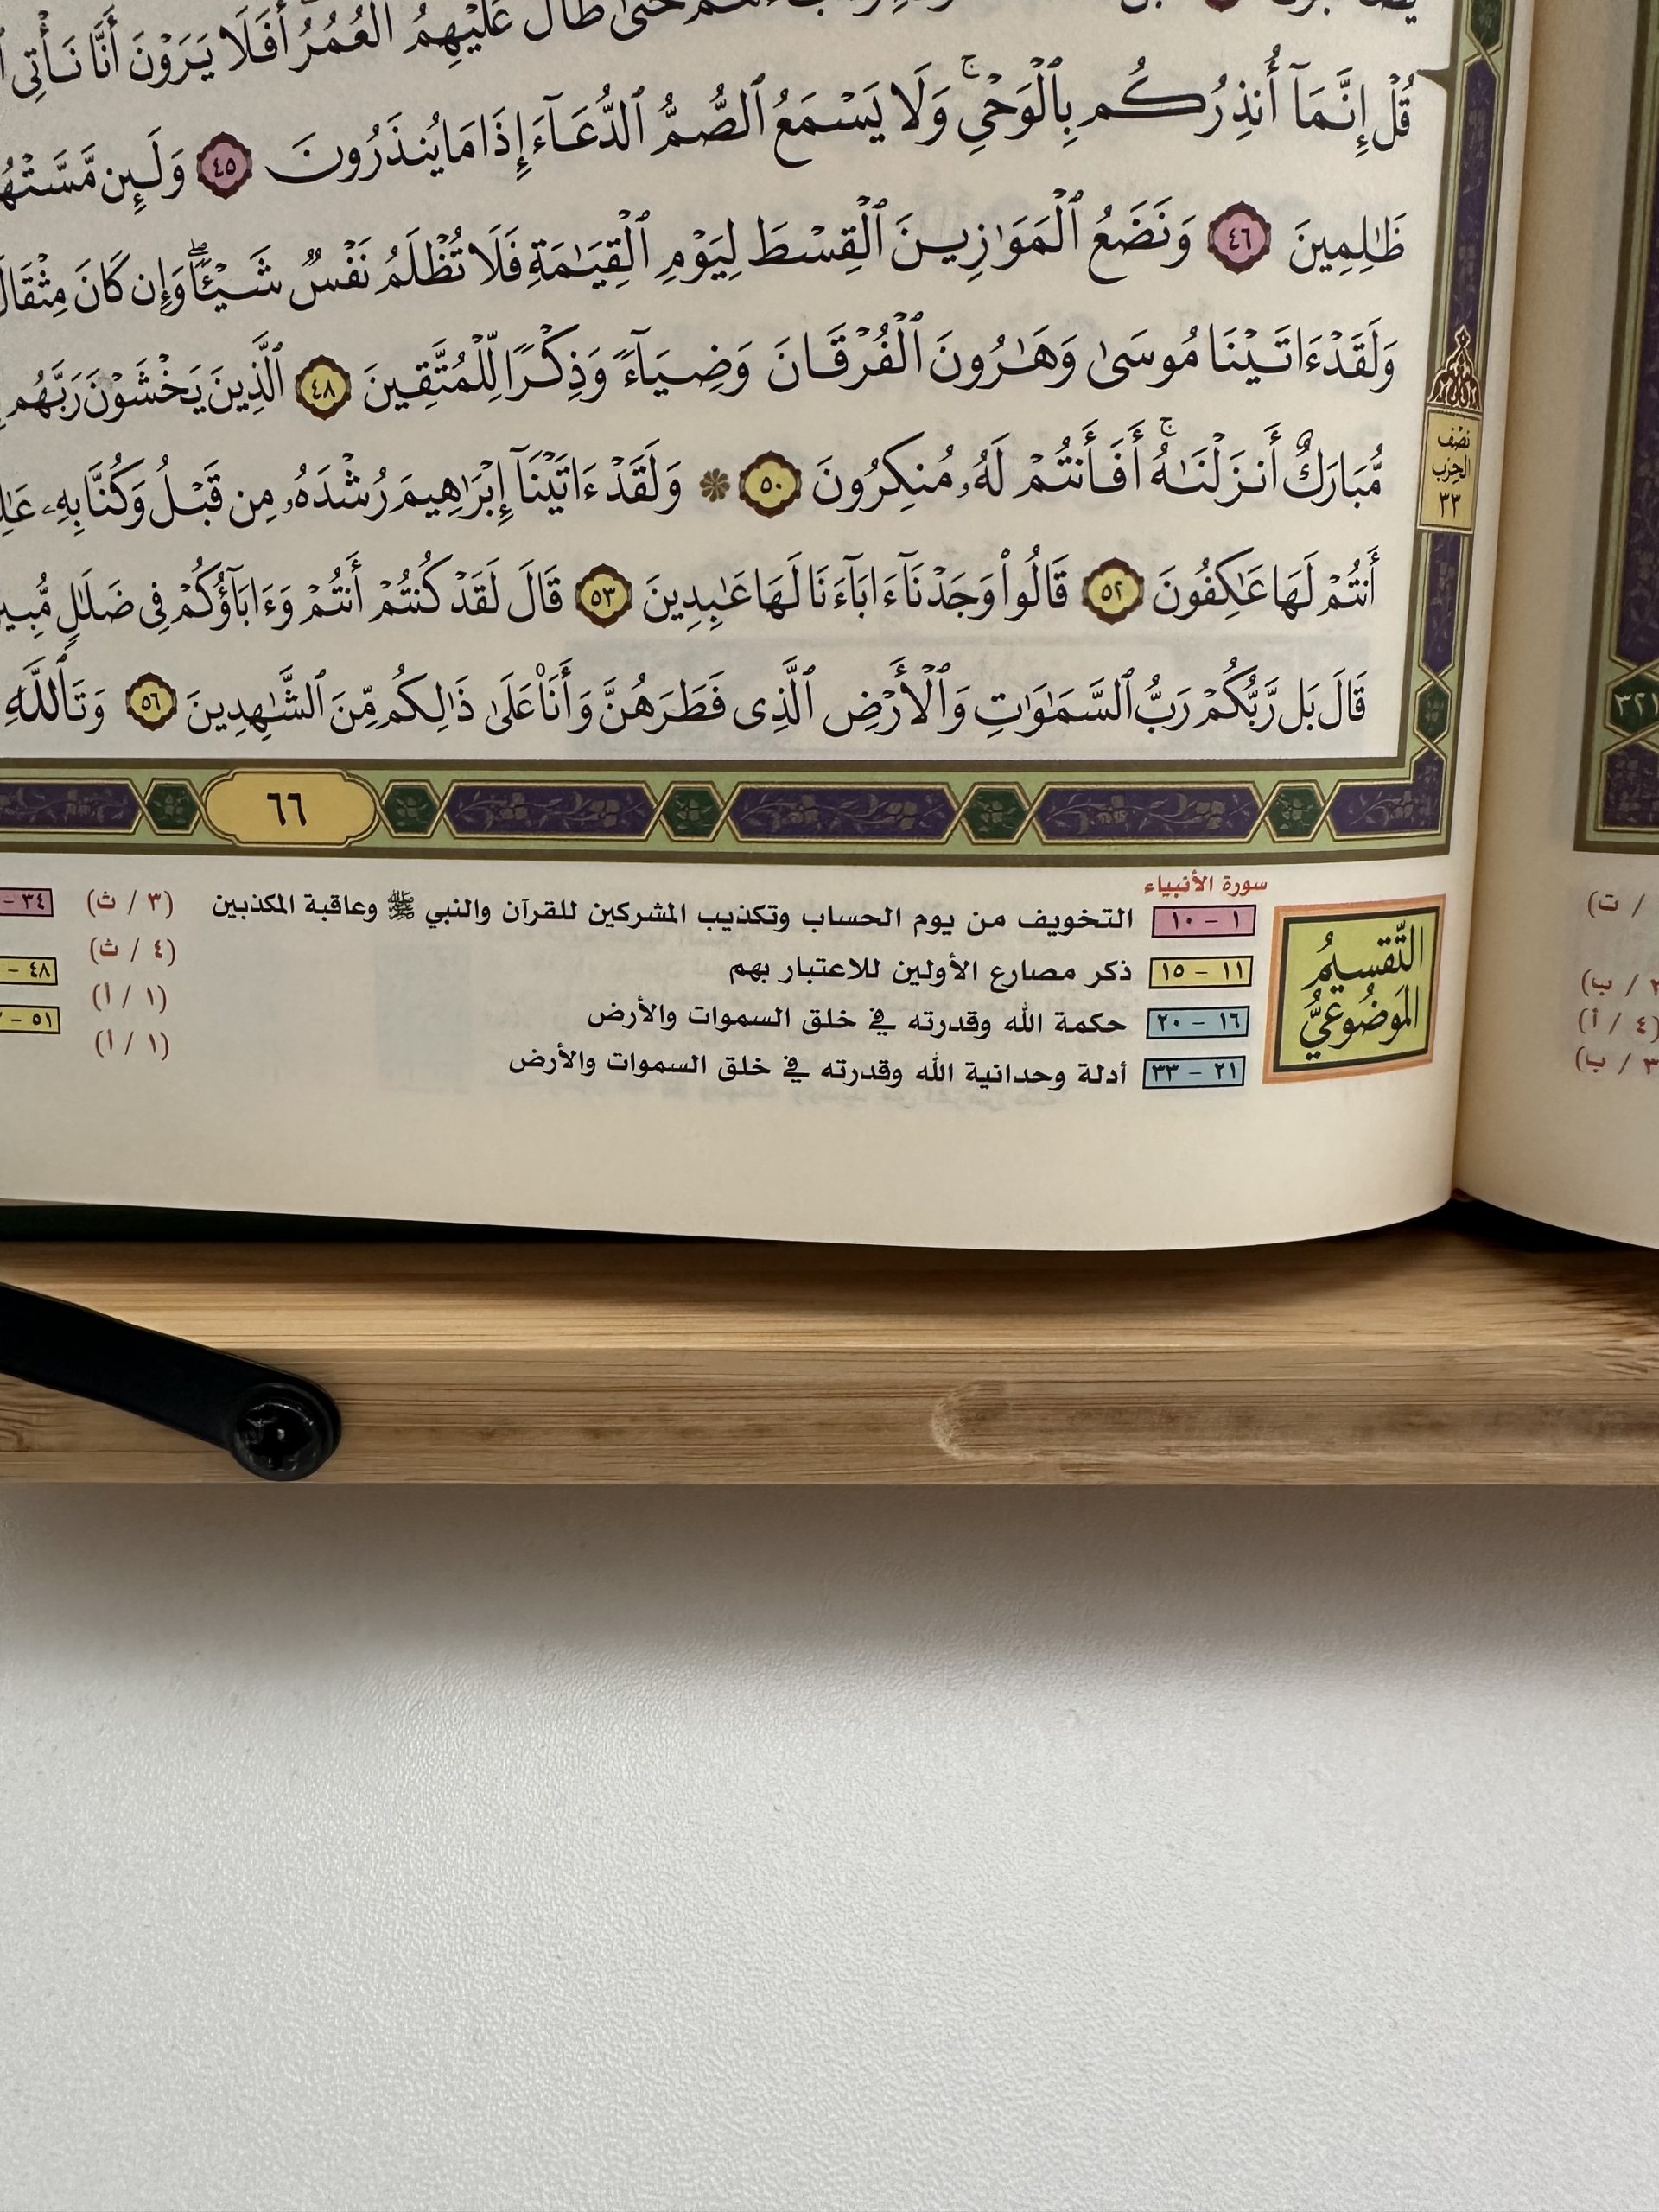 طَالَ عَلَيْهِمُ ٱلْعُمُرُ أَفَلَا يَرَوْنَ أَنَّا نَأْتِى
قُلْ إِنَّمَآ أُنذِرُكُم بِٱلْوَحْىِ ۚ وَلَا يَسْمَعُ ٱلصُّمُّ ٱلدُّعَآءَ إِذَا مَا يُنذَرُونَ ٤٥ وَلَئِن مَّسَّتْهُ
ظَٰلِمِينَ ٤٦ وَنَضَعُ ٱلْمَوَٰزِينَ ٱلْقِسْطَ لِيَوْمِ ٱلْقِيَٰمَةِ فَلَا تُظْلَمُ نَفْسٌ شَيْـًٔا ۖ وَإِن كَانَ مِثْقَالَ
وَلَقَدْ ءَاتَيْنَا مُوسَىٰ وَهَٰرُونَ ٱلْفُرْقَانَ وَضِيَآءً وَذِكْرًا لِّلْمُتَّقِينَ ٤٨ ٱلَّذِينَ يَخْشَوْنَ رَبَّهُم
مُّبَارَكٌ أَنزَلْنَٰهُ ۚ أَفَأَنتُمْ لَهُۥ مُنكِرُونَ ٥٠ ۞ وَلَقَدْ ءَاتَيْنَآ إِبْرَٰهِيمَ رُشْدَهُۥ مِن قَبْلُ وَكُنَّا بِهِۦ
أَنتُمْ لَهَا عَٰكِفُونَ ٥٢ قَالُوا۟ وَجَدْنَآ ءَابَآءَنَا لَهَا عَٰبِدِينَ ٥٣ قَالَ لَقَدْ كُنتُمْ أَنتُمْ وَءَابَآؤُكُمْ فِى ضَلَٰلٍ مُّبِينٍ
قَالَ بَل رَّبُّكُمْ رَبُّ ٱلسَّمَٰوَٰتِ وَٱلْأَرْضِ ٱلَّذِى فَطَرَهُنَّ وَأَنَا۠ عَلَىٰ ذَٰلِكُم مِّنَ ٱلشَّٰهِدِينَ ٥٦ وَتَٱللَّهِ
نصف
الحزب
٣٣
٣٢١
٦٦
التَّقسيمُ
المَوضُوعيُّ
سورة الأنبياء
١ - ١٠ التخويف من يوم الحساب وتكذيب المشركين للقرآن والنبي ﷺ وعاقبة المكذبين (٣ / ث)
١١ - ١٥ ذكر مصارع الأولين للاعتبار بهم (٤ / ث)
١٦ - ٢٠ حكمة الله وقدرته في خلق السموات والأرض (١ / أ)
٢١ - ٣٣ أدلة وحدانية الله وقدرته في خلق السموات والأرض (١ / أ)
٣٤ -
٤٨ -
٥١ -
/ ت)
/ ب)
(٤ / أ)
(٣ / ب)